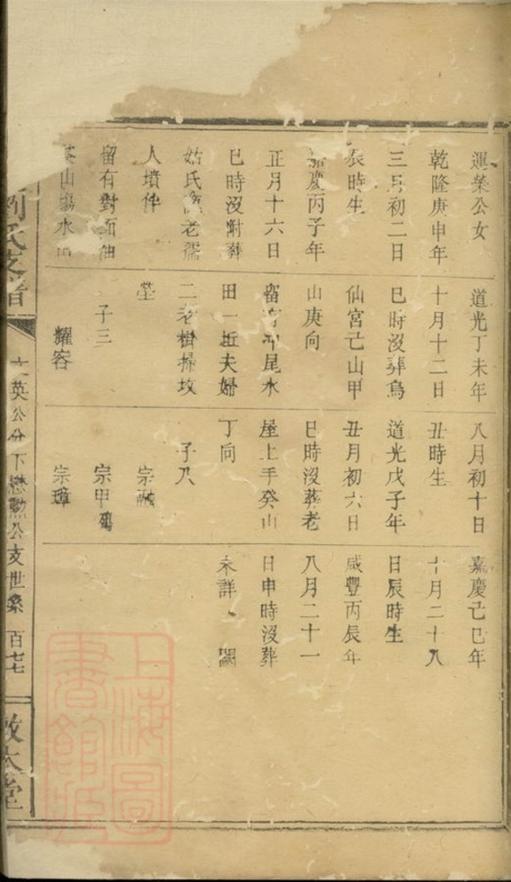 運榮公女
乾隆庚申年
三月初二日
辰時生
嘉慶丙子年
正月十六日
巳時沒附葬
姑氏老孺
人墳伴
留有對面油
山塲水
道光丁未年
十月十二日
巳時沒葬烏
仙宮亡山甲
山庚向
留尾水
田一坵夫婦
二老樹掃坟
塋
子三
耀容
八月初十日
丑時生
道光戊子年
丑月初六日
巳時沒葬老
屋上手癸山
丁向
子八
宗
宗甲
宗璋
嘉慶己巳年
十月二十八
日辰時生
咸豐丙辰年
八月二十一
日申時沒葬
未詳
劉氏支譜
英公分下懋勲公支世系 百七
敦本堂
上海圖
書館藏